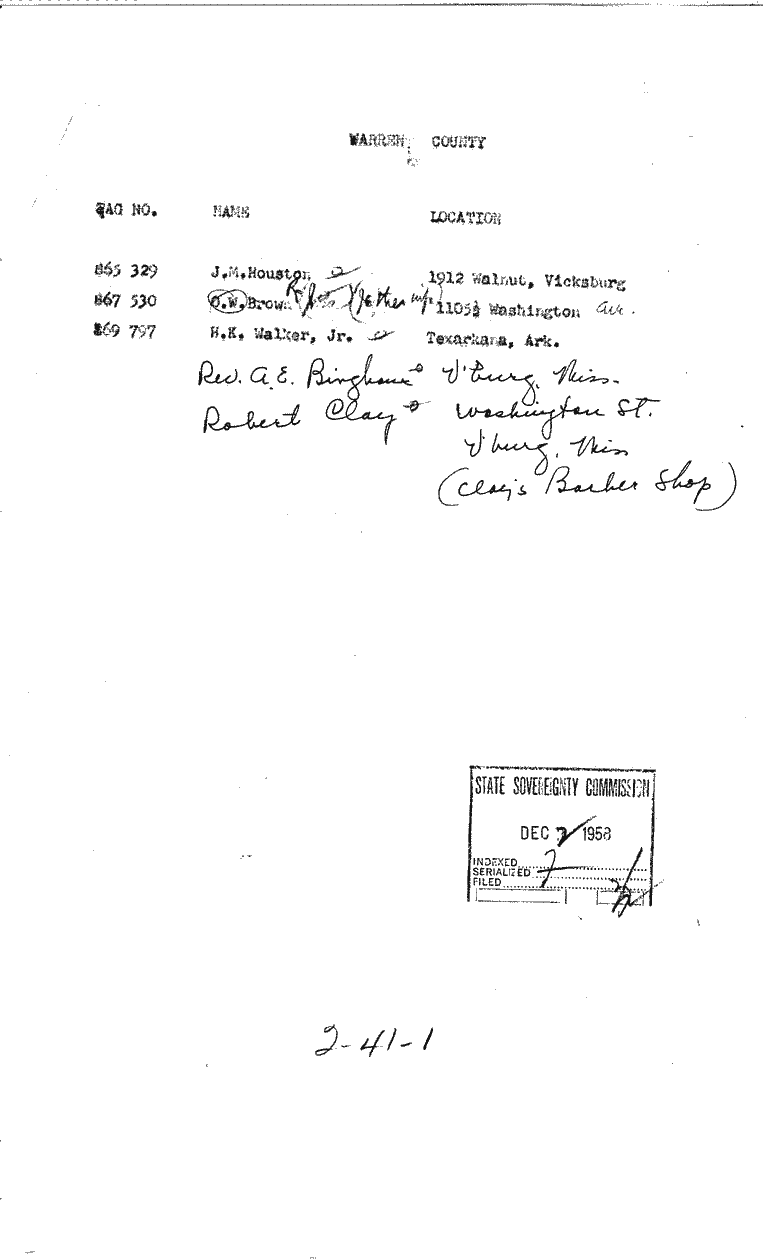 WARREN COUNTY
TAG NO. NAME LOCATION
865 329 J.M.Houston 1912 Walnut, Vicksburg
867 530 O.W.Brown 1105½ Washington Ave.
869 797 H.K. Walker, Jr. Texarkana, Ark.
Rev. A.E. Bingham V'burg, Miss.
Robert Clay Washington St.
V'burg, Miss
(Clay's Barber Shop)
STATE SOVEREIGNTY COMMISSION
DEC 1958
INDEXED
SERIALIZED
FILED
2-41-1